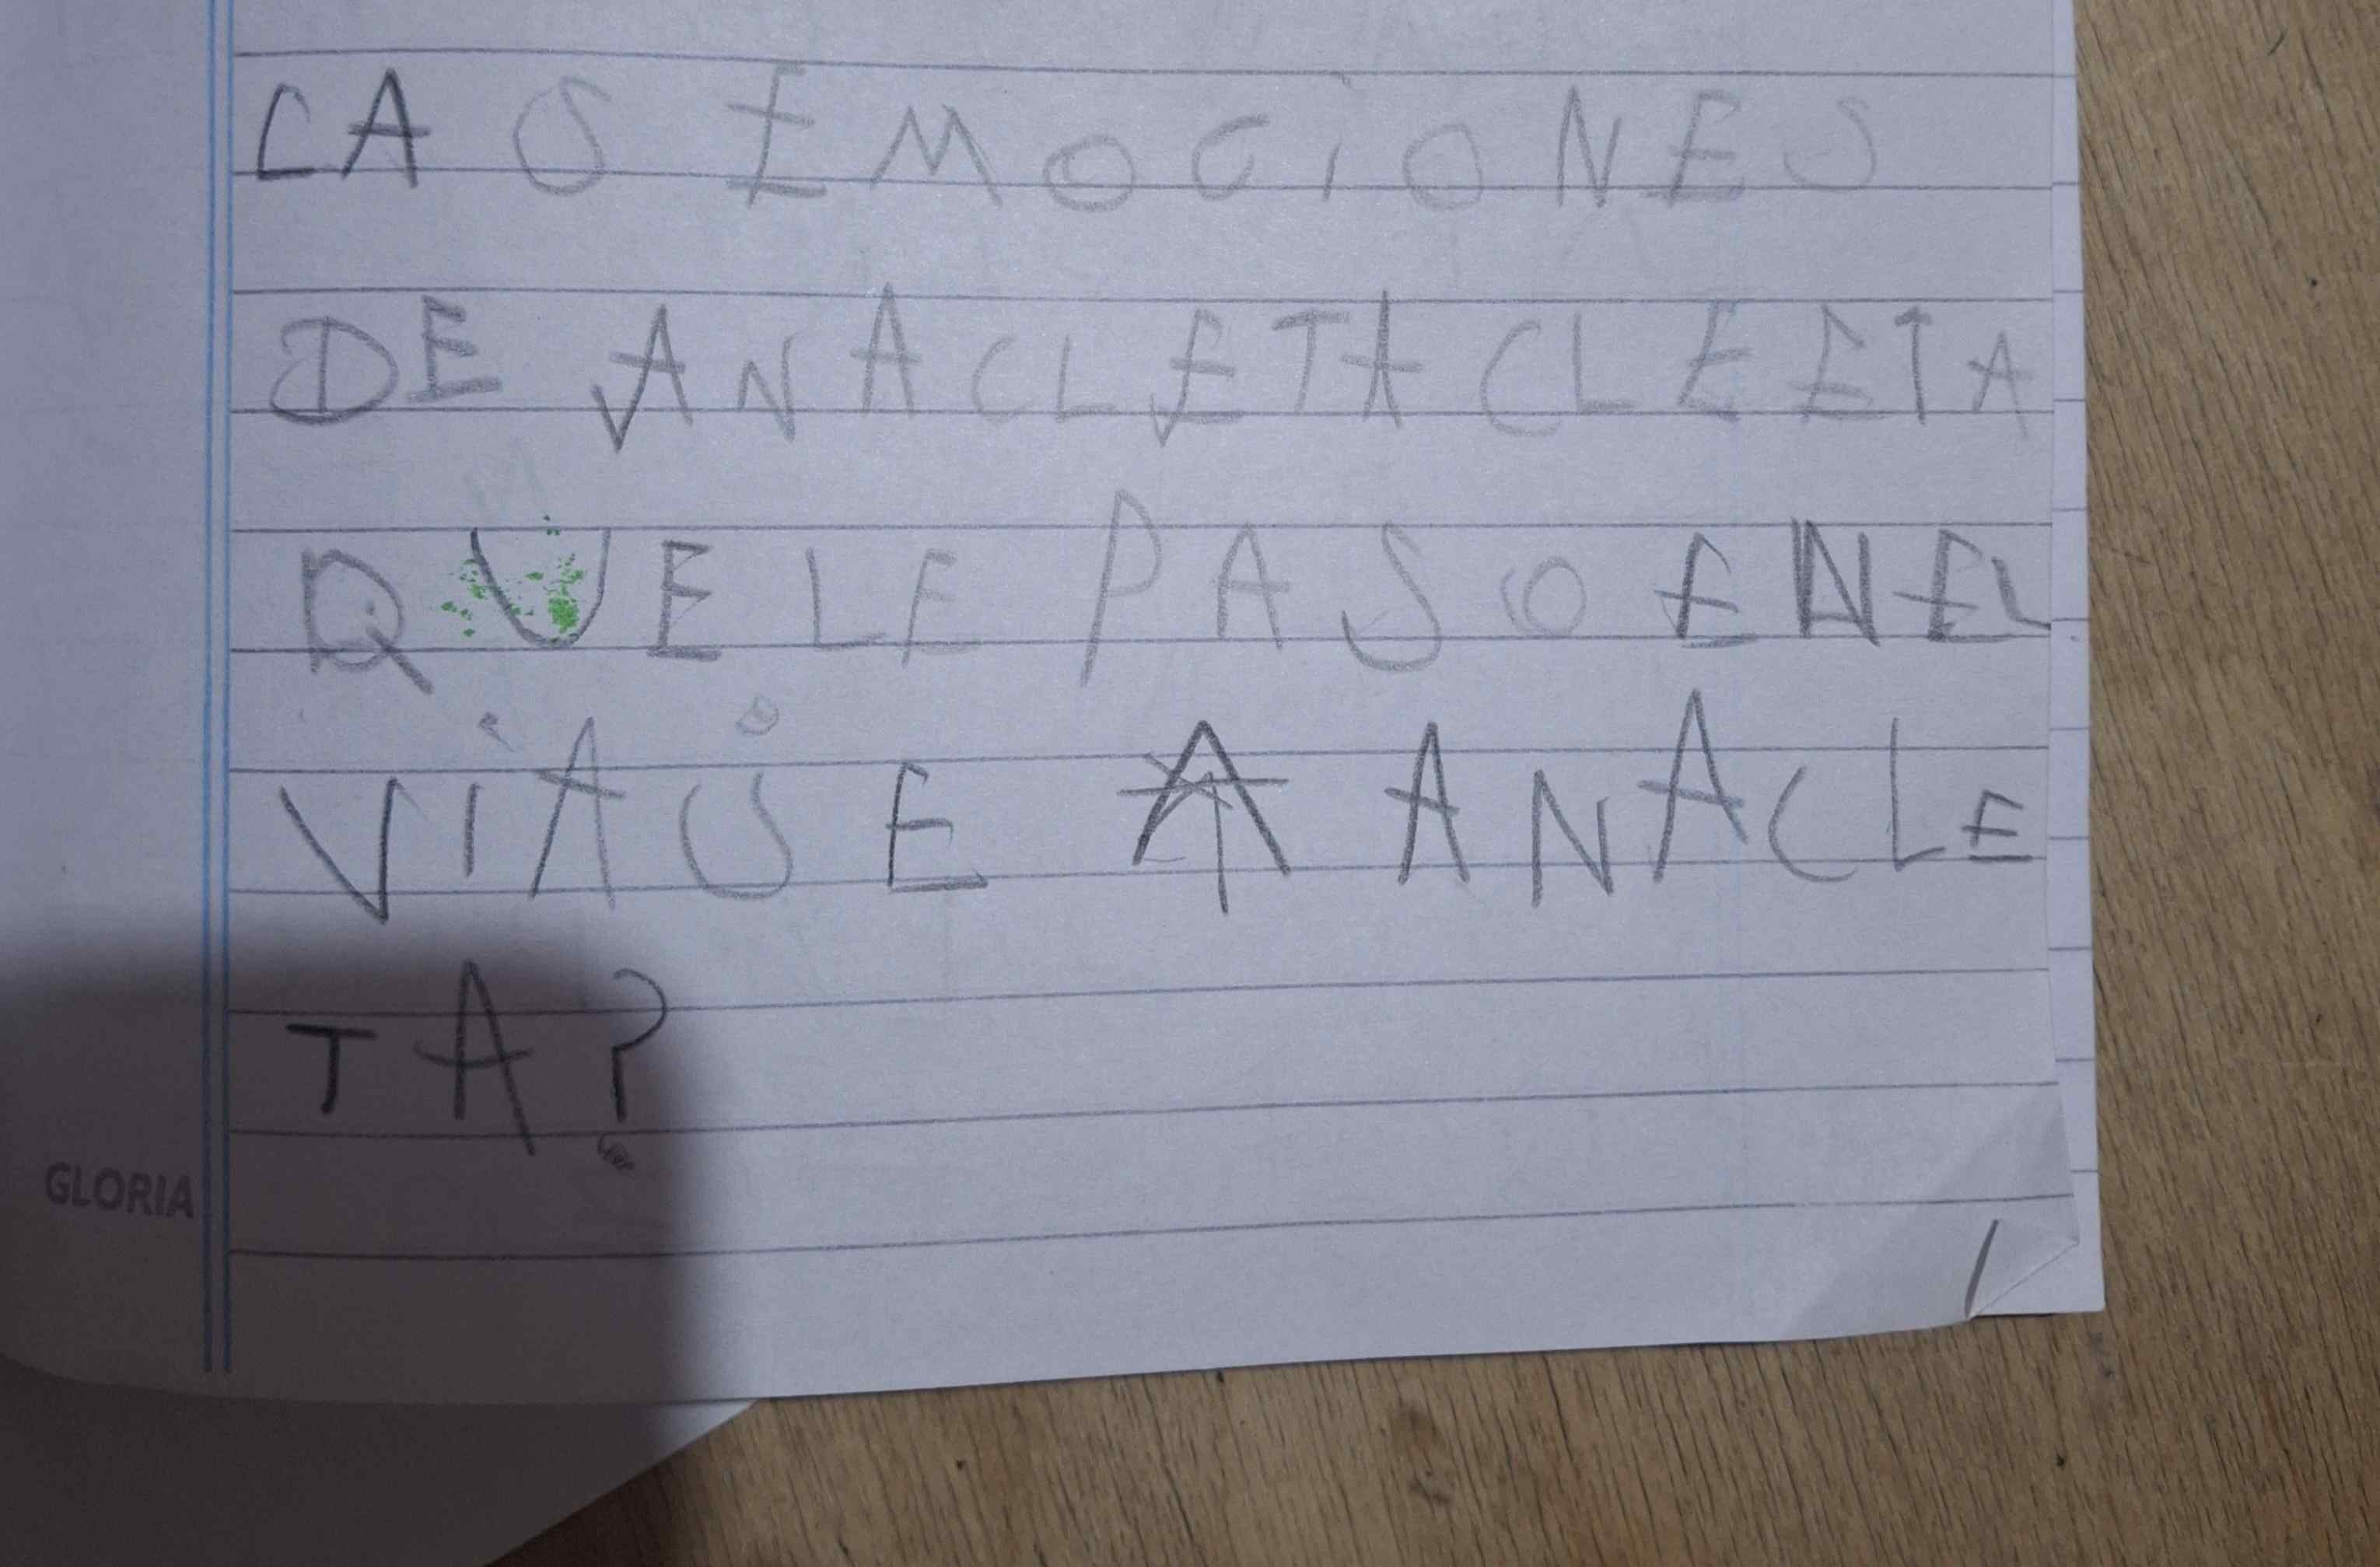 LAS EMOCIONES
DE ANACLETA CLEETA
QUE LE PASO EN EL
VIAJE A ANACLE
TA?
GLORIA